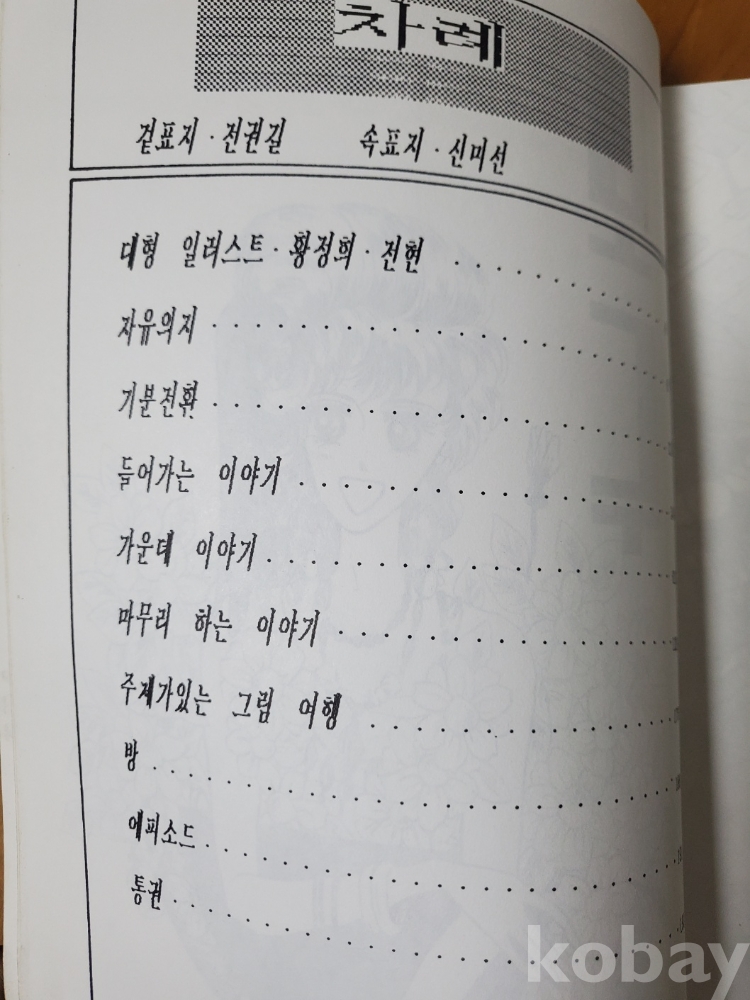 차례
겉표지 · 전권길 속표지 · 신미선
대형 일러스트 · 황정희 · 전현
자유의지
기분전환
들어가는 이야기
가운데 이야기
마무리 하는 이야기
주제가있는 그림 여행
방
에피소드
통권
kobay